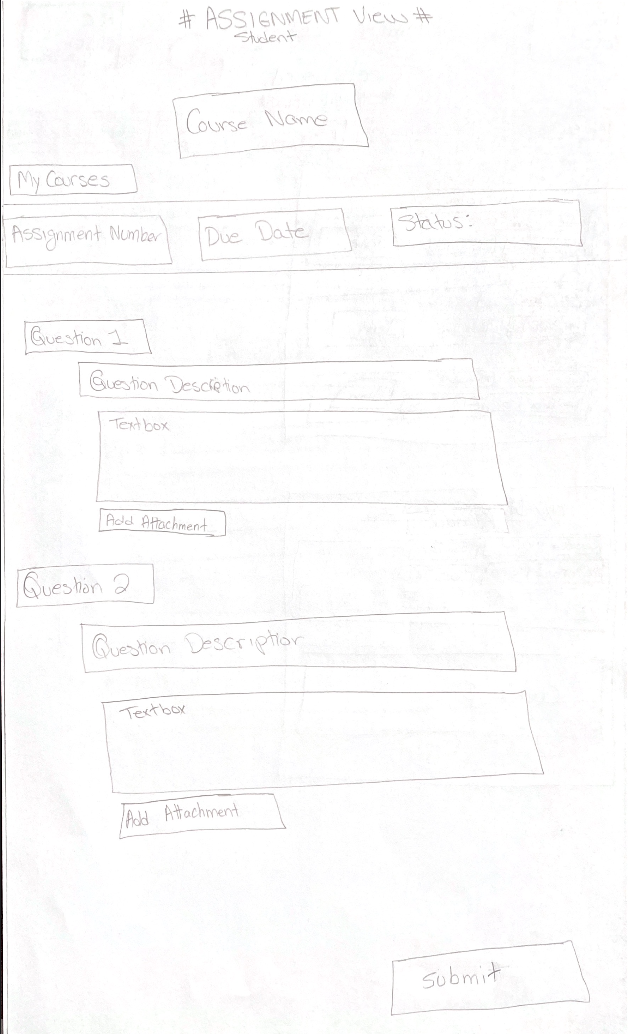 # ASSIGNMENT View #
Student
Course Name
My Courses
Assignment Number
Due Date
Status:
Question 1
Question Description
Textbox
Add Attachment
Question 2
Question Description
Textbox
Add Attachment
Submit